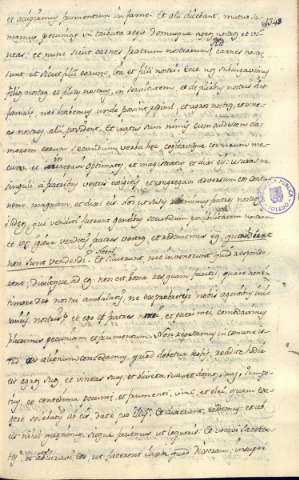 et accipiamus frumentum in fame. Et alii dicebant, mutuo su
mamus pecunias in tributa regis demusque agros nostros et vi
neas. et nunc sicut carnes fratrum nostrorum sic carnes nostrae
sunt et sicut filii eorum, ita et filii nostri. Ecce nos subiugavimus
filios nostros et filias nostras, in servitutem, et de filiabus nostris sunt
famulae, nec habemus unde possint redimi, et agros nostros, et vine
as nostras alii possident. Et iratus sum nimis cum audissem cla
morem eorum secundum verba haec cogitavitque cor meum me
cum et increpavi optimates et magistratus et dixi eis usurasne
singuli a fratribus vestris exigitis et congregavi adversum eos contio
nem magnam, et dixi eis nos ut scitis redemimus fratres nostros
iudeos, qui venditi fuerant gentibus secundum possibilitatem nostram
et vos igitur venditis fratres vestros et redimemus eos
non sunt vendendi. Et siluerunt nec invenerunt quid responde
rent, dixique ad eos non est bona res quam facitis, quare non in
timore dei nostri ambulatis, ne exprobretur nobis a gentibus ini
micis nostris et ego et fratres mei, et pueri mei commodavimus
plurimis pecuniam et frumentum. Non repetamus in commune is
tud aes alienum concedamus, quod debetur nobis, reddite hodie
eis agros suos, et vineas suas, et oliveta sua et domos suas, quin po
tius, et centesimam pecuniae, frumenti, vini, et olei quam exi
gere soletis ab eis, date pro illis. Et dixerunt, reddemus, et ab
eis nihil quaeremus, sicque faciemus ut loqueris. Et vocavi sacerdo
tes et adiuravi eos, ut facerent iuxta quod dixeram, insuper